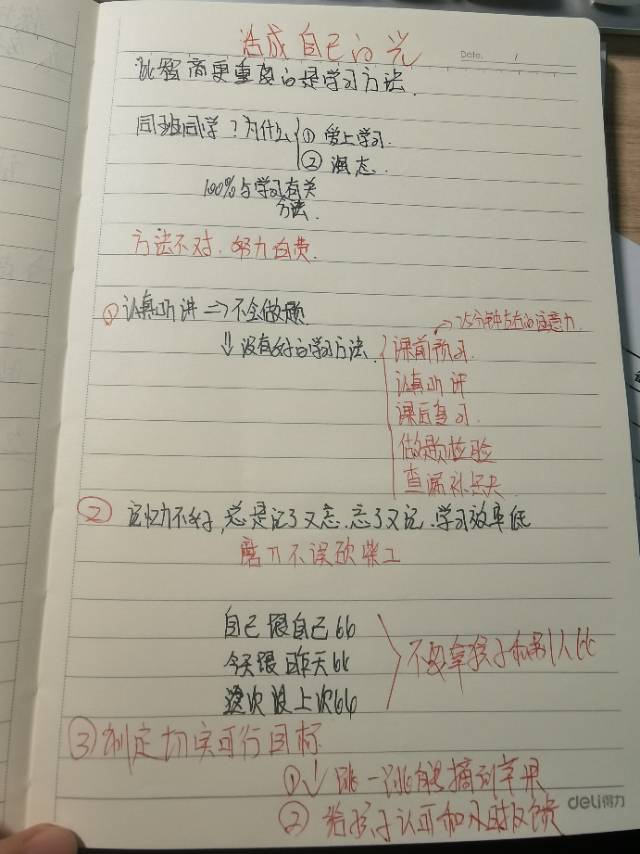 活成自己的光
Date. /
比智商更重要的是学习方法.
同班同学?为什么 ① 爱上学习.
② 状态.
100%与学习有关
方法.
方法不对.努力白费.
→25分钟左右的注意力
①认真听讲⇒不会做题.
⇓没有好的学习方法. 课前预习.
认真听讲
课后复习.
做题检验
查漏补缺
② 记忆力不好,总是记了又忘.忘了又记.学习效率低
磨刀不误砍柴工
自己跟自己比
今天跟昨天比 不要拿孩子和别人比
这次跟上次比
③制定切实可行目标
①↓跳一跳能摘到苹果
② 给孩子认可和及时反馈
deli得力